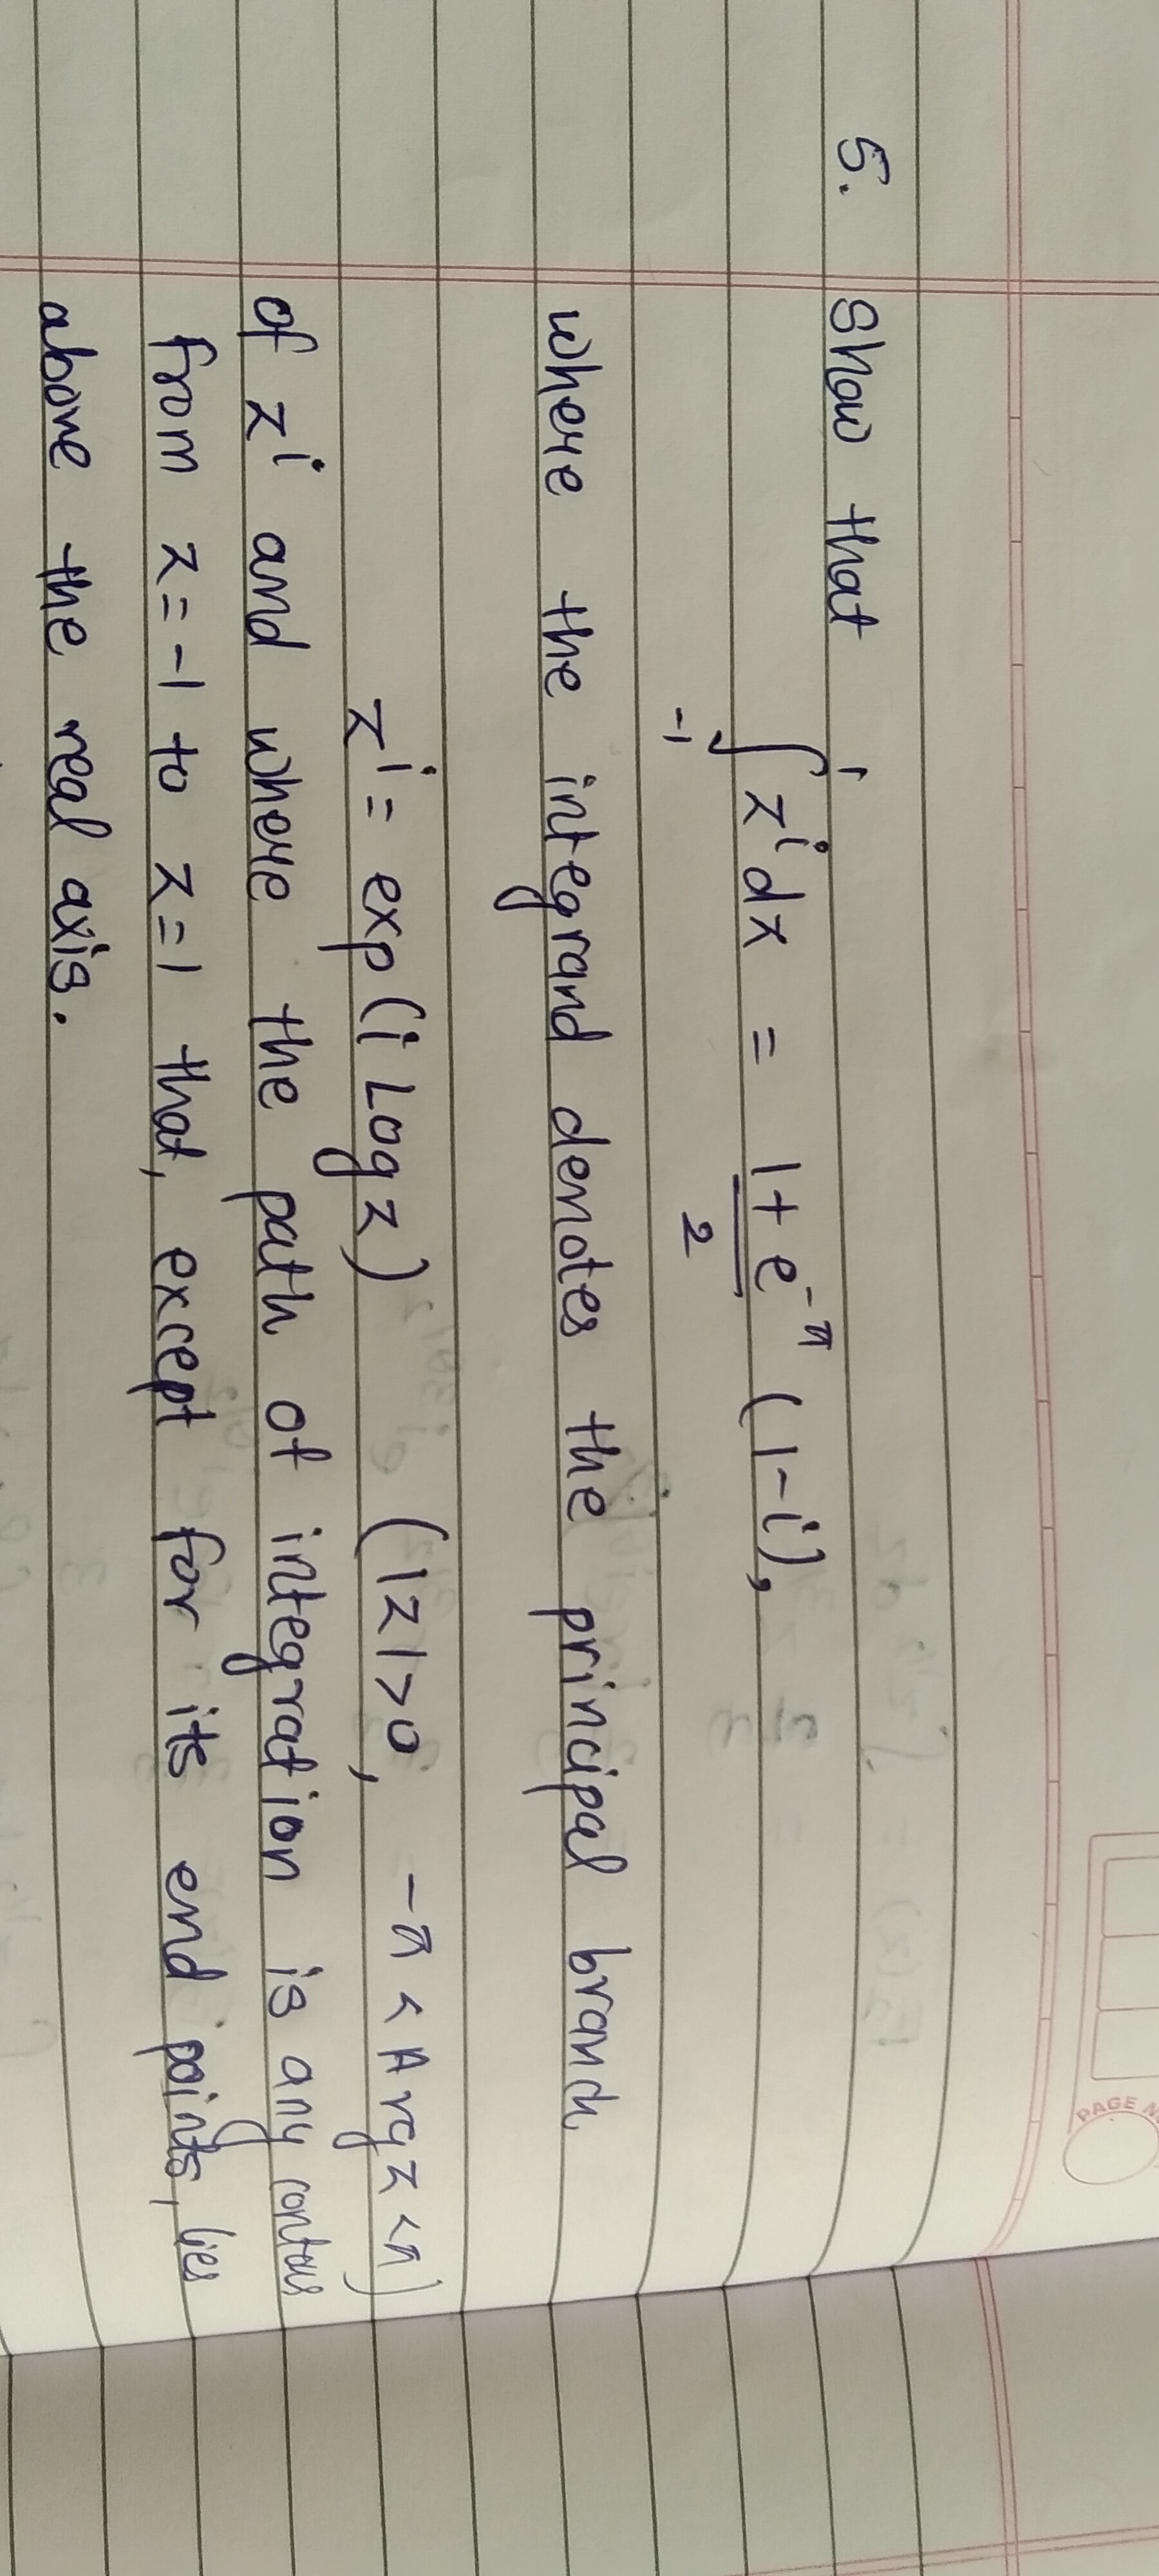 5. Show that
∫₋₁¹ zⁱ dz = 1+e^-π/2 (1-i),
where the integrand denotes the principal branch
zⁱ = exp(i Log z) (|z|>0, -π < Arg z < π)
of zⁱ and where the path of integration is any contour
from z=-1 to z=1 that, except for its end points, lies
above the real axis.
PAGE NO